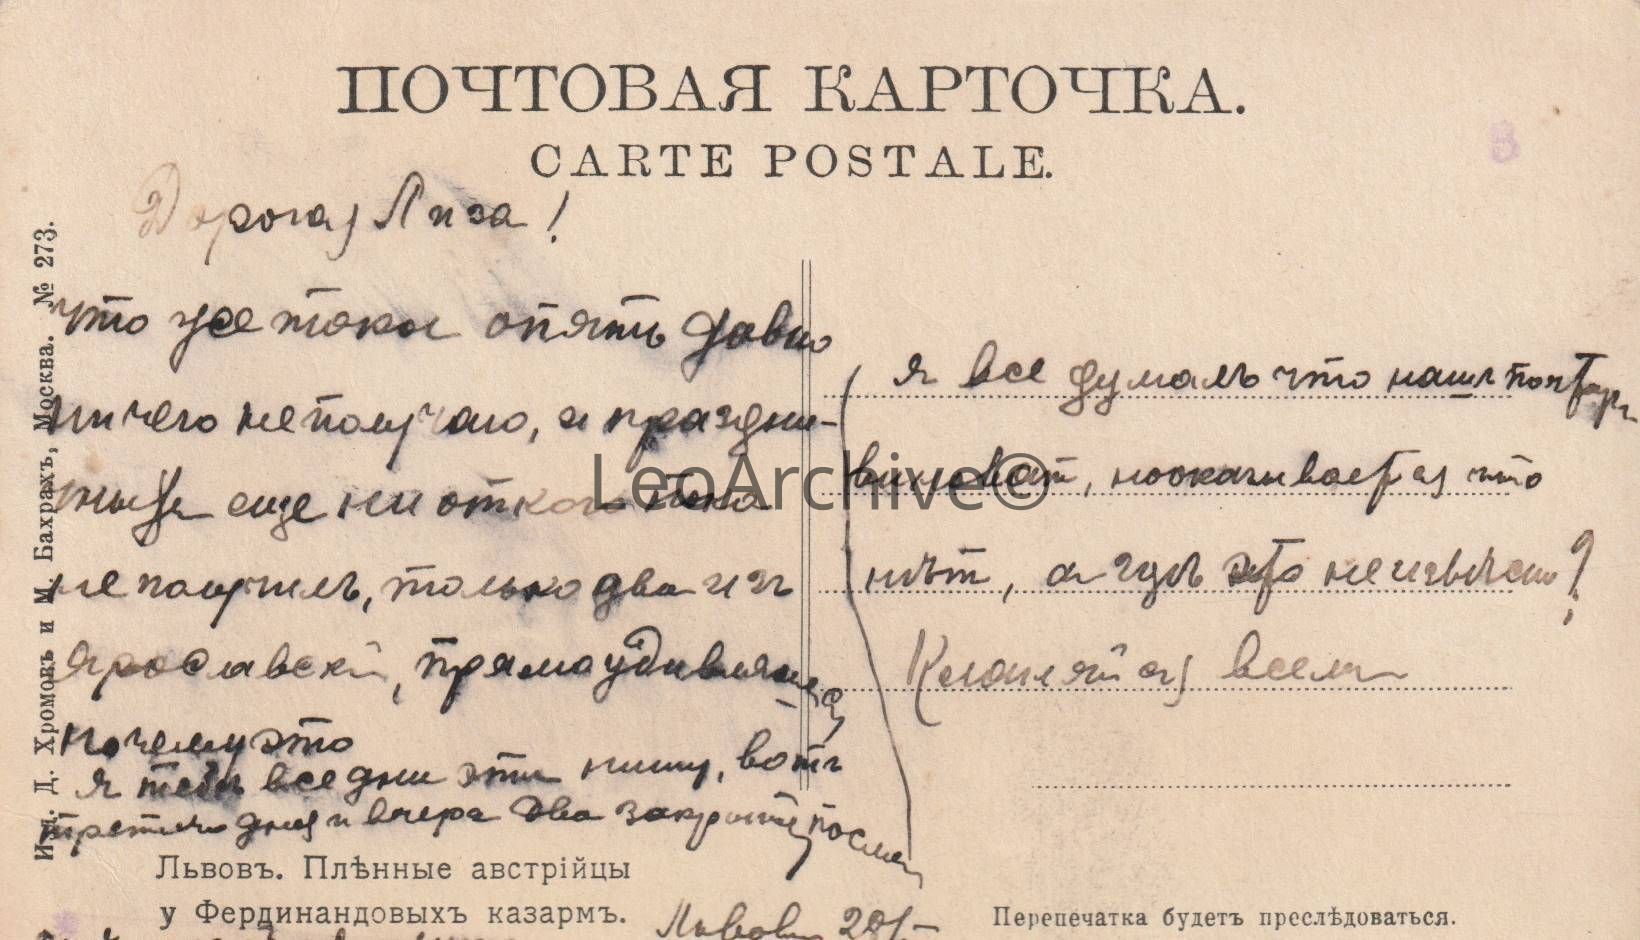 ПОЧТОВАЯ КАРТОЧКА.
CARTE POSTALE.
Изд. Д. Хромовъ и М. Бахрахъ, Москва. № 273.
Дорогая Лиза!
что же токи опять давно
ничего не получаю, и праздни-
еще ни от кого пока
не получилъ, только два изъ
Ярославской, прямо удивляешься
почему это
я тебѣ все дни эти пишу, вотъ
третьяго дня и вчера два закрытыхъ послал
я все думалъ что наши почтари
виноваты, но оказывается что
нѣт, а гдѣ это неизвѣстно?
Кланяйся всем
LeoArchive©
Львовъ. Плѣнные австрійцы
у Фердинандовыхъ казармъ.
Львовъ 20/
Перепечатка будетъ преслѣдоваться.